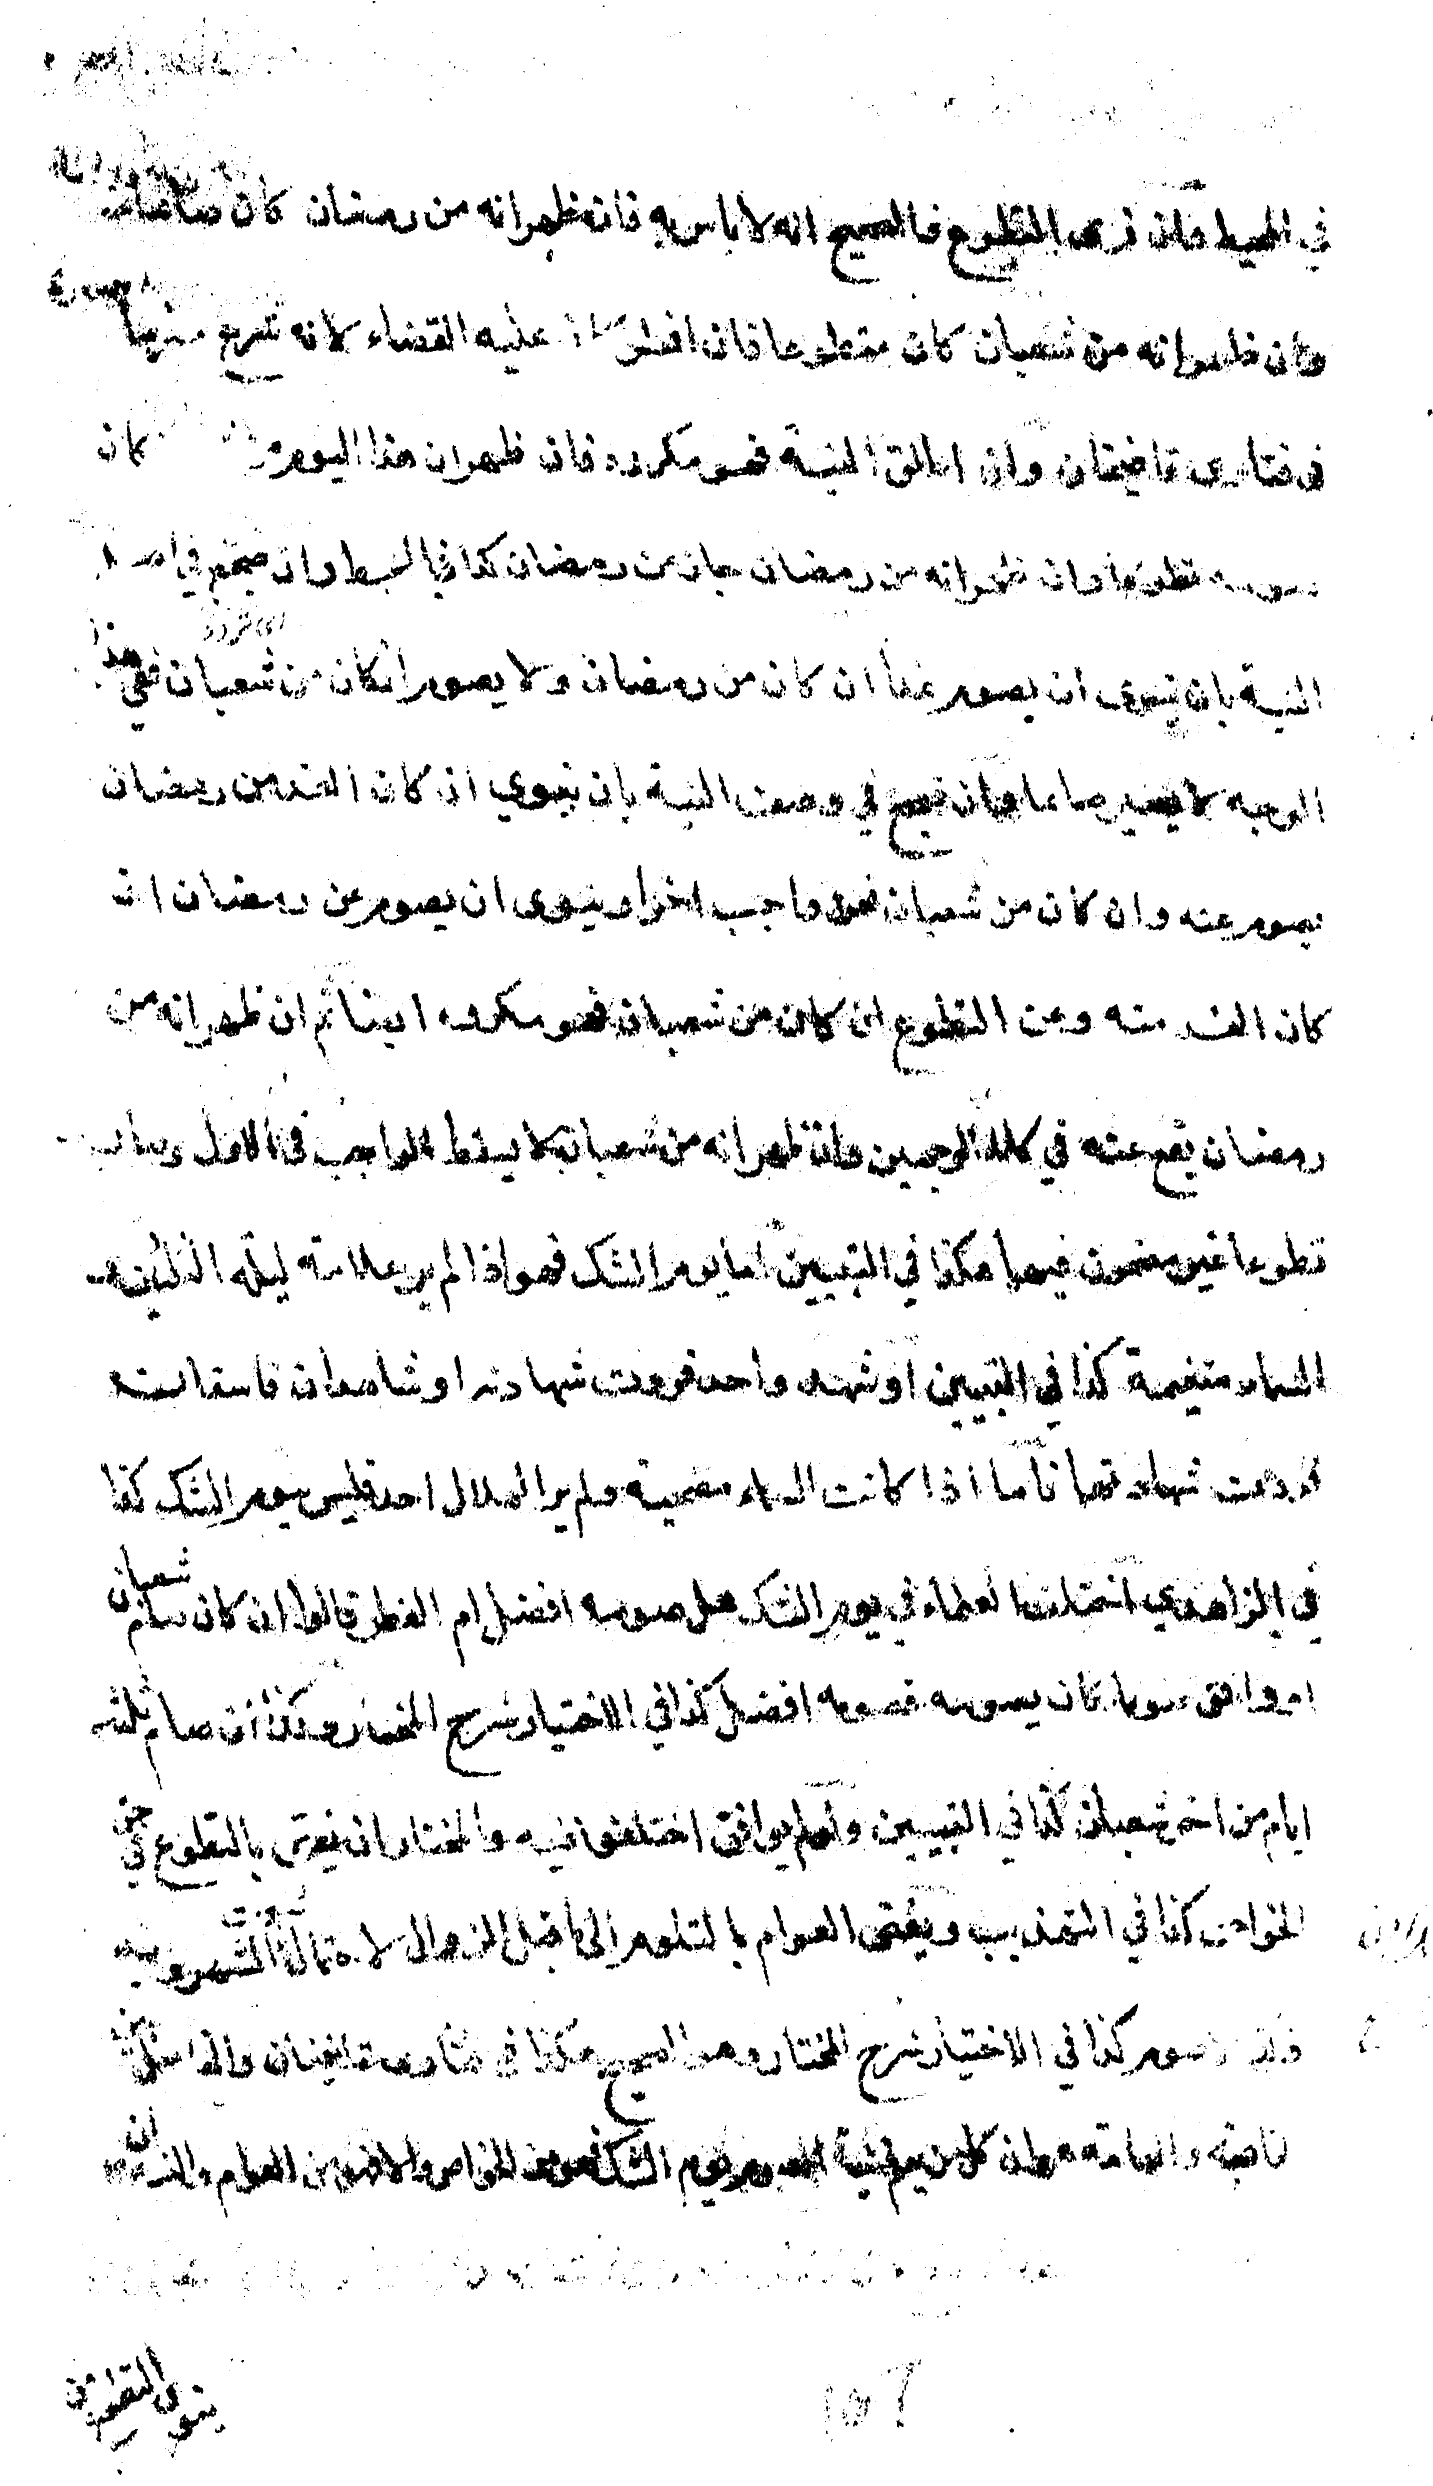 في المحيط وان نوى التطوع فالصحيح انه لا باس به فان ظهر انه من رمضان كان صائما
وان ظهر انه من شعبان كان متطوعا فان افطر كان عليه القضاء لانه شرع
في فتاوى قاضيخان وان اطلق النية فهو مكروه فان ظهر ان هذا اليوم كان
تطوعا وان ظهر انه من رمضان جاز من رمضان كذا في المحيط وان ضجع في
النية بان ينوى ان يصوم غدا ان كان من رمضان ولا يصوم ان كان من شعبان ففي هذا
الوجه لا يصير صائما وان ضجع في وصف النية بان ينوي ان كان الغد من رمضان
يصوم عنه وان كان من شعبان فعن واجب اخر او ينوى ان يصوم عن رمضان ان
كان الغد منه وعن التطوع ان كان من شعبان فهو مكروه ايضا ثم ان ظهر انه من
رمضان يقع عنه في كلا الوجهين وان ظهر انه من شعبان لا يسقط الواجب في الاول وصار
تطوعا غير مضمون فيهما هكذا في التبيين اما يوم الشك فهو اذا لم ير علامة ليلة الثلثين و
السماء متغيمة كذا في التبيين او شهد واحد فردت شهادته او شاهدان فاسقان
فردت شهادتهما فاما اذا كانت السماء مصحية ولم ير الهلال احد فليس بيوم الشك كذا
في الزاهدي اختلف العلماء في يوم الشك هل صومه افضل ام الفطر قالوا ان كان صام شعبان
او وافق صوما كان يصومه فصومه افضل كذا في الاختيار شرح المختار وكذا ان صام ثلثه
ايام من اخر شعبان كذا في التبيين وان لم يوافق اختلفوا فيه والمختار ان يفتى بالتطوع في حق
الخواص كذا في التهذيب ويفتى العوام بالتلوم الى ما قبل الزوال لاحتمال ثبوت الشهر وبعد
ذلك لا صوم كذا في الاختيار شرح المختار وهو الصحيح هكذا في فتاوى قاضيخان والفاصل بين
الخاصة والعامة هو ان كل من يعلم نية الصوم يوم الشك فهو من الخواص والا فهو من العوام والنية ان
ينوى التطوع من